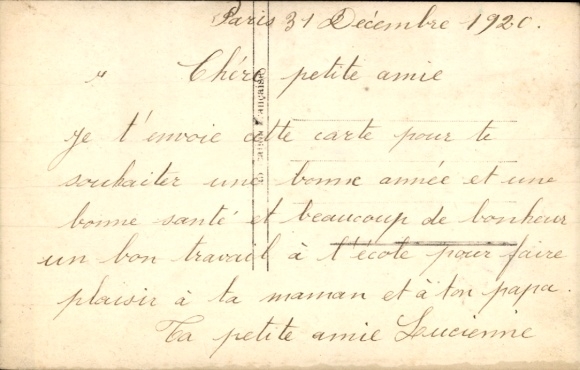 Paris 31 Décembre 1920.
" Chére petite amie
je t'envoie cette carte pour te
souhaiter une bonne année et une
bonne santé et beaucoup de bonheur
un bon travail à l'école pour faire
plaisir à ta maman et à ton papa.
Ta petite amie Lucienne